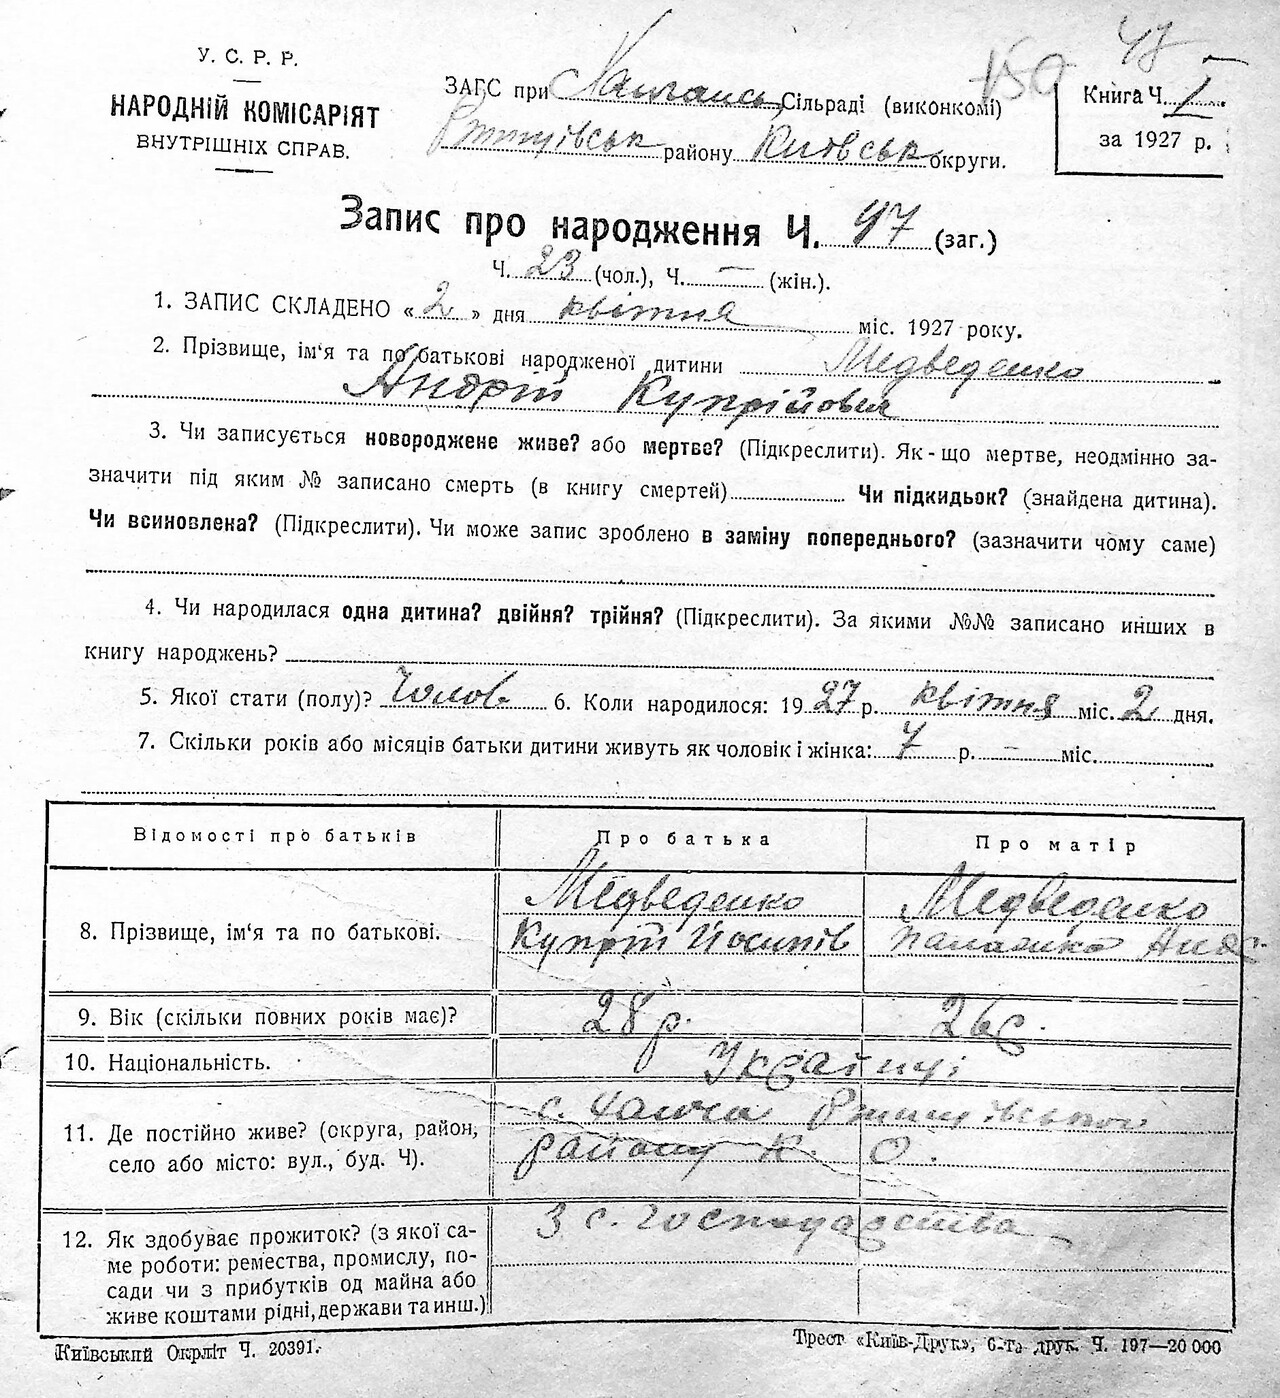 У. С. Р. Р.
НАРОДНІЙ КОМІСАРІЯТ
ВНУТРІШНІХ СПРАВ.
47
150
ЗАГС при Сільраді (виконкомі)
Ржищівськ району Київськ округи.
Книга Ч. I
за 1927 р.
Запис про народження Ч. 47 (заг.)
Ч. 23 (чол.), Ч. — (жін.).
1. ЗАПИС СКЛАДЕНО «2» дня квітня міс. 1927 року.
2. Прізвище, ім'я та по батькові народженої дитини Медведенко
Андрій Купрійович
3. Чи записується новороджене живе? або мертве? (Підкреслити). Як-що мертве, неодмінно за-
значити під яким № записано смерть (в книгу смертей) Чи підкидьок? (знайдена дитина).
Чи всиновлена? (Підкреслити). Чи може запис зроблено в заміну попереднього? (зазначити чому саме)
4. Чи народилася одна дитина? двійня? трійня? (Підкреслити). За якими №№ записано инших в
книгу народжень?
5. Якої стати (полу)? Чолов. 6. Коли народилося: 1927 р. квітня міс. 2 дня.
7. Скільки років або місяців батьки дитини живуть як чоловік і жінка: 7 р. — міс.
Відомості про батьків Про батька Про матір
8. Прізвище, ім'я та по батькові.
Медведенко Медведенко
Купрій Йосипів
9. Вік (скільки повних років має)? 28 р. 26 р.
10. Національність. Українці
11. Де постійно живе? (округа, район,
село або місто: вул., буд. Ч).
с. Ржищівської
району К. О.
12. Як здобуває прожиток? (з якої са-
ме роботи: ремества, промислу, по-
сади чи з прибутків од майна або
живе коштами рідні, держави та инш.)
З с. господарства
Київський Окрліт Ч. 20391.
Трест «Київ-Друк», 6-та друк. Ч. 197—20 000